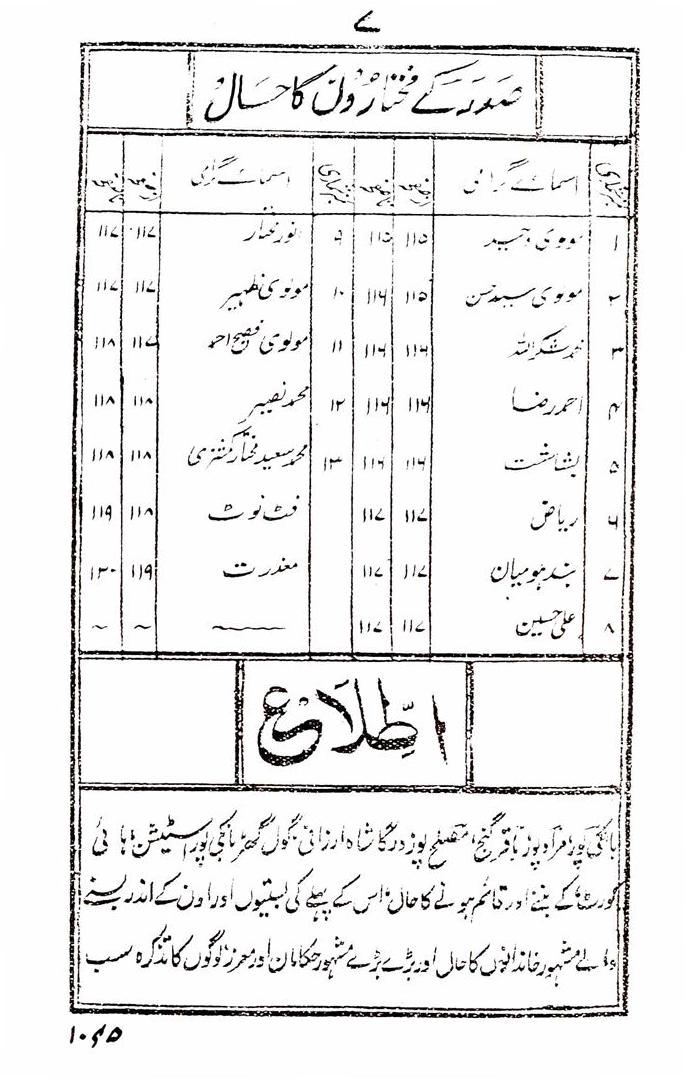 ۷
صدر کے مختارون کا حال
نمبر شمار اسمائے گرامی از صفحہ تا صفحہ نمبر شمار اسمائے گرامی از صفحہ تا صفحہ
۱ مولوی وحید ۱۱۵ ۱۱۵ ۹ انور مختار ۱۱۷ ۱۱۷
۲ مولوی سید حسن ۱۱۵ ۱۱۶ ۱۰ مولوی ظہیر ۱۱۷ ۱۱۷
۳ محمد شکر اللہ ۱۱۶ ۱۱۶ ۱۱ مولوی فصیح احمد ۱۱۷ ۱۱۸
۴ احمد رضا ۱۱۶ ۱۱۶ ۱۲ محمد نصیر ۱۱۸ ۱۱۸
۵ بشاشت ۱۱۶ ۱۱۶ ۱۳ محمد سعید مختار کمشنری ۱۱۸ ۱۱۸
۶ ریاض ۱۱۷ ۱۱۷ فٹ نوٹ ۱۱۸ ۱۱۹
۷ بندہو میان ۱۱۷ ۱۱۷ معذرت ۱۱۹ ۱۲۰
۸ علی حسین ۱۱۷ ۱۱۷
اطلاع
بانکی پور، مرادپور، باقر گنج، مصلح پور، درگا شاہ ارزانی، گول گھر، بانکی پور اسٹیشن، ہائی
کورٹ، کے بننے اور قائم ہونے کا حال، اس کے پہلے کی بستیوں اور اون کے اندر بسنے
والے مشہور خاندانوں کا حال اور بڑے بڑے مشہور حکامان اور معزز لوگوں کا تذکرہ سب
۱۰۴۵